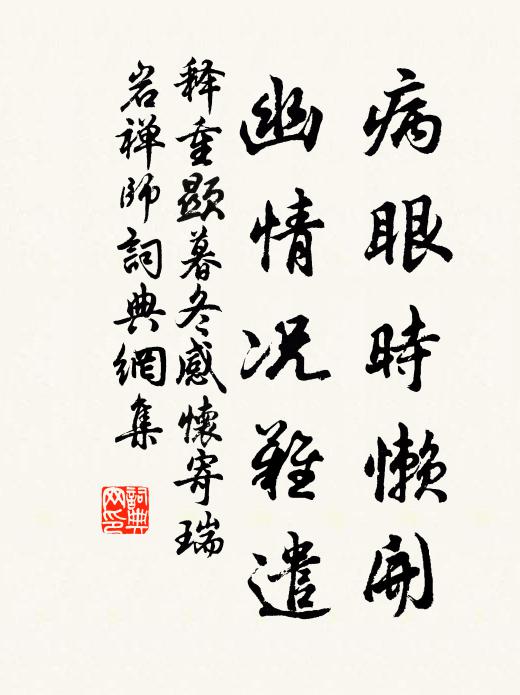 病眼時懶開
幽情况難遣
释重顕暮冬感懷寄瑞
岩禅師詞典網集
詞典
网印